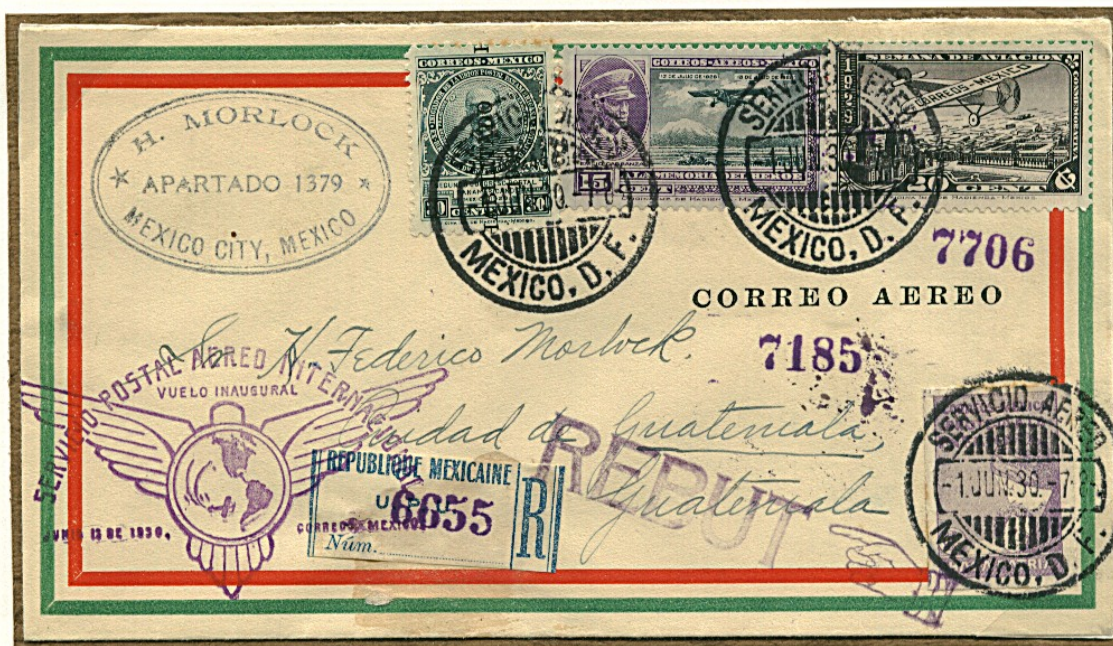 H. MORLOCK
APARTADO 1379
MEXICO CITY, MEXICO
CORREOS MEXICO
20 CENT
CORREOS-AEREOS-MEXICO
15
SEMANA DE AVIACION
1929
CORREOS-MEXICO
20 CENT
MEXICO, D. F.
SERVICIO AEREO
MEXICO, D. F.
7706
CORREO AEREO
7185
Sr. H. Federico Morlock.
Ciudad de Guatemala,
Guatemala
SERVICIO POSTAL AEREO INTERNACIONAL
VUELO INAUGURAL
JUNIO 13 DE 1930.
CORREOS MEXICO
REPUBLIQUE MEXICAINE
U.P.U.
6655
Núm.
R
REBUT
SERVICIO AEREO
-1.JUN.30.-7
MEXICO, D. F.